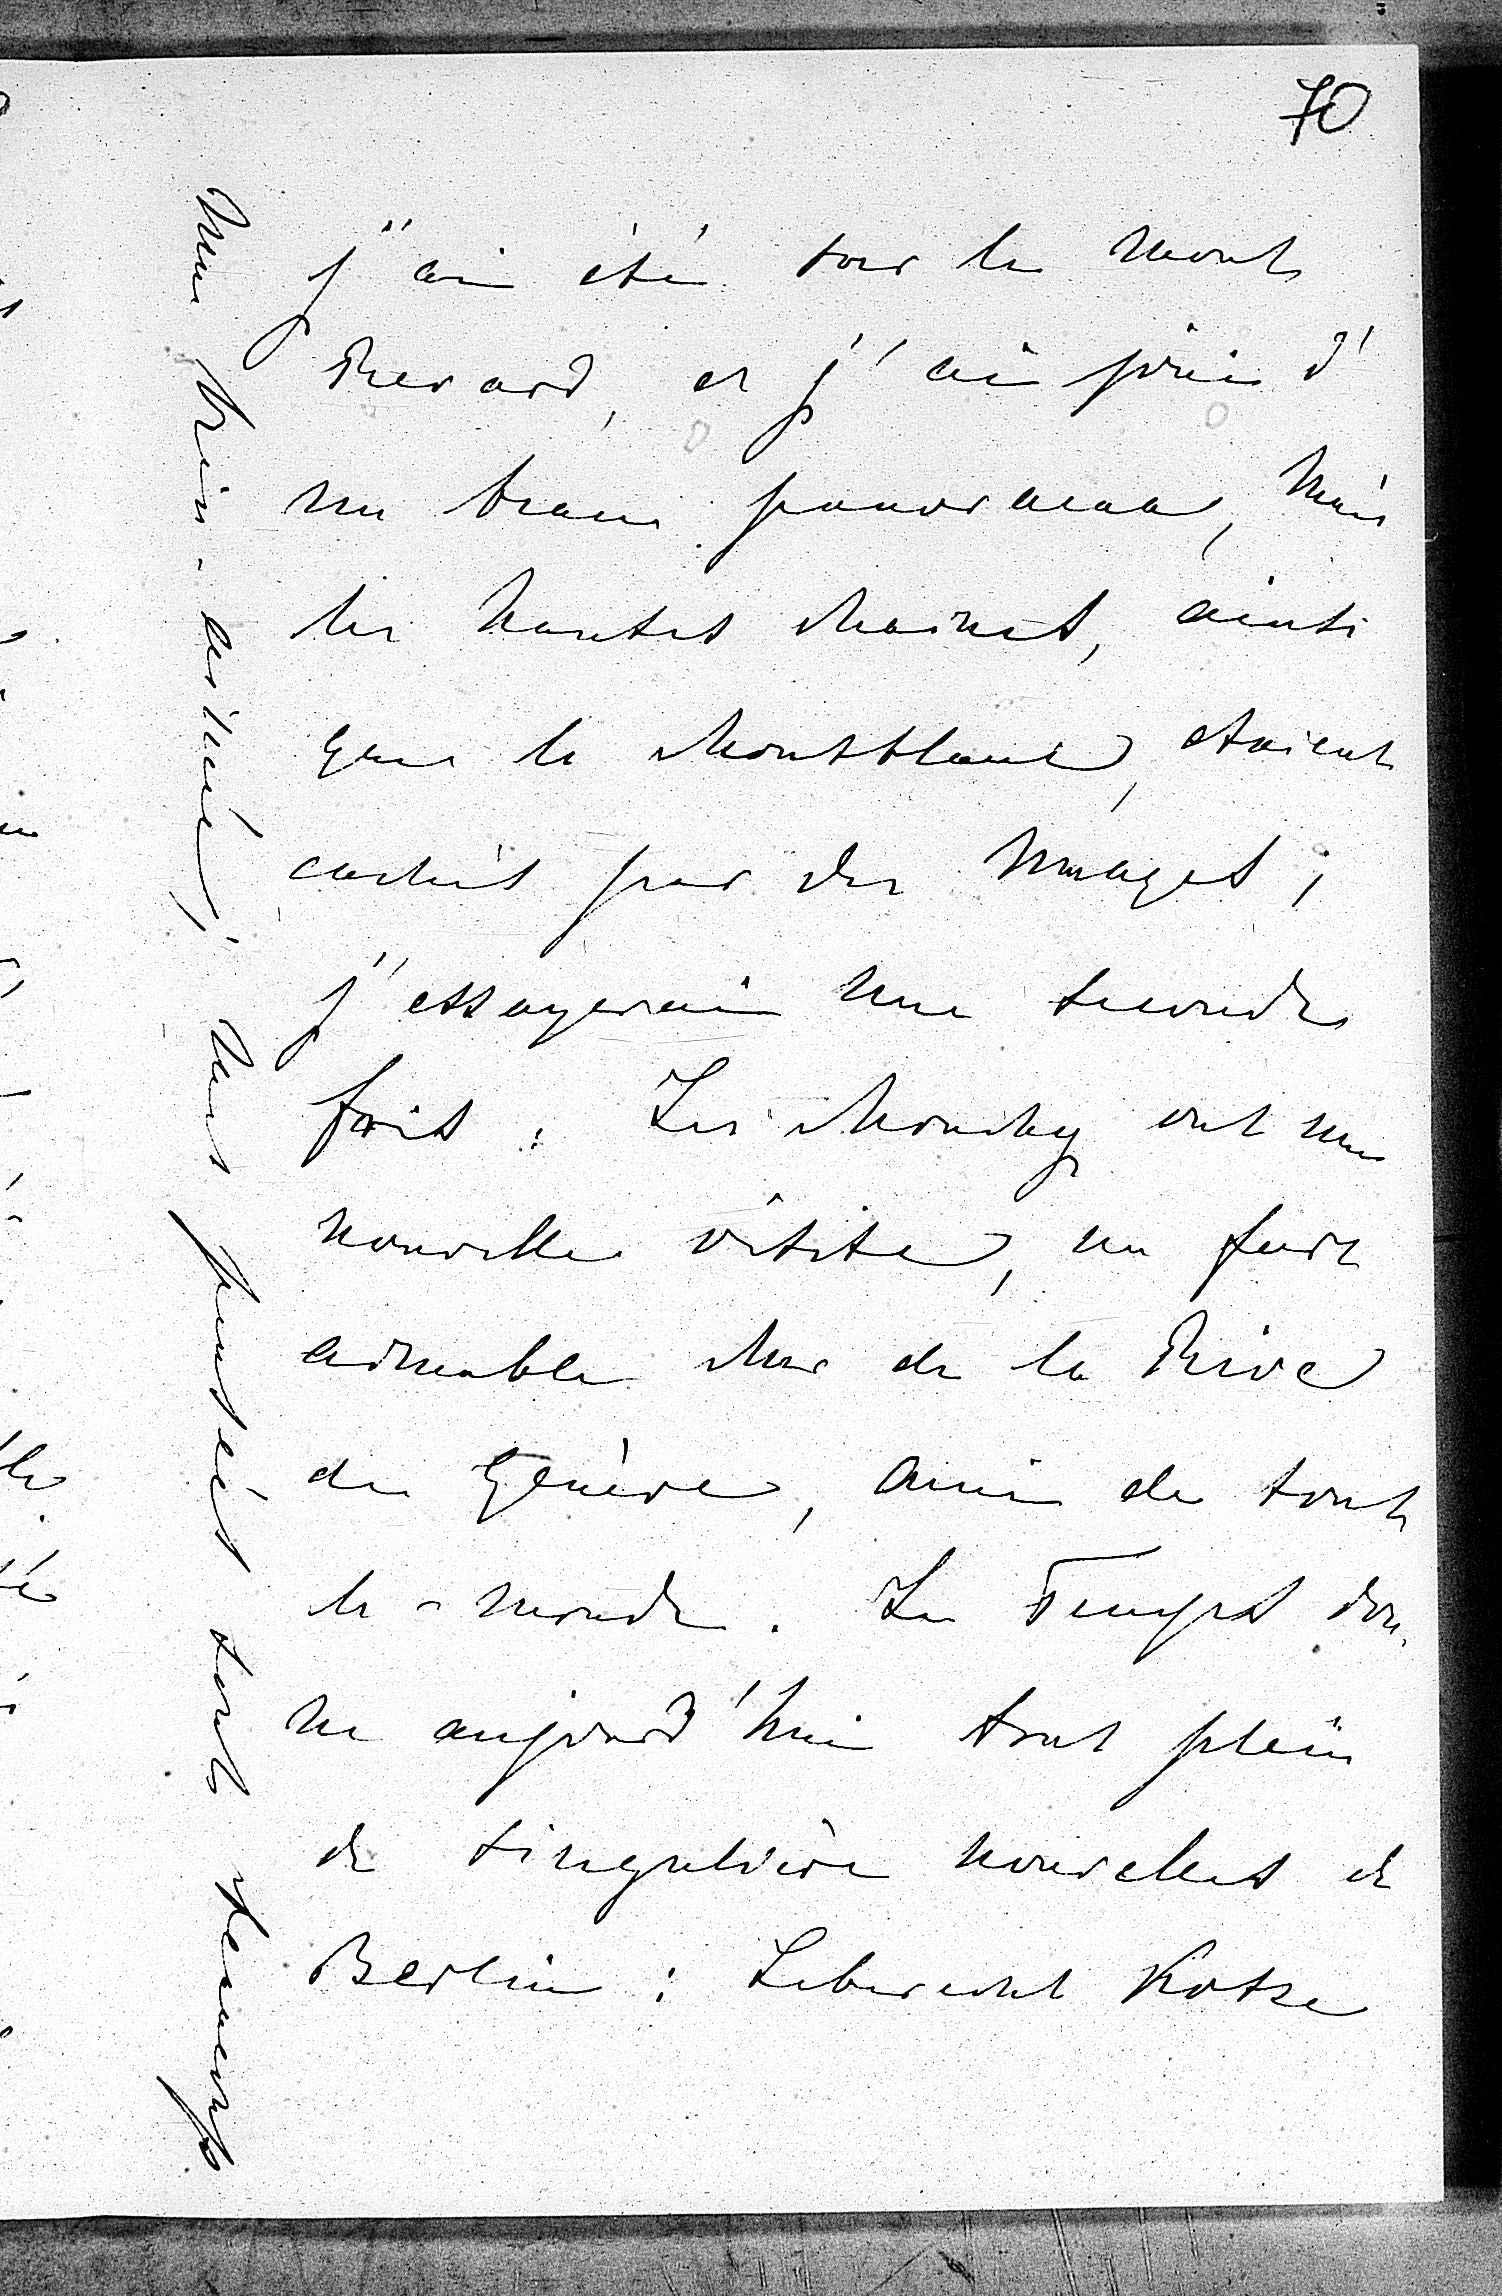 70
j'ai été sur le mont
Revard, et j'ai joui d'
un beau panorama, mais
les hautes Maines, ainsi
que le Montblanc, etaient
cachés par des nuages;
j'essayerai une seconde
fois: Les Mouchy ont une
nouvelle visite, un fort
aimable Mr de la Rive
de Genève, ami de tout
le-monde. Le Temps don-
ne aujourd'hui tout plein
de singulière nouvelles de
Berlin: Leberecht Kotze
ma bien-aimée; mes pensées sont